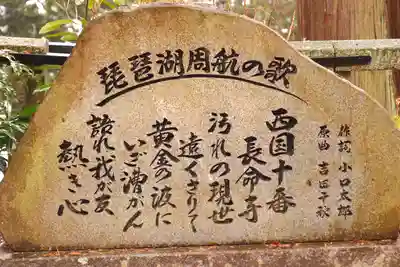 琵琶湖周航の歌
作詞 小口太郎
原曲 吉田千秋
西国十番
長命寺
汚れの現世
遠くさりて
黄金の波に
いざ漕がん
語れ我が友
熱き心